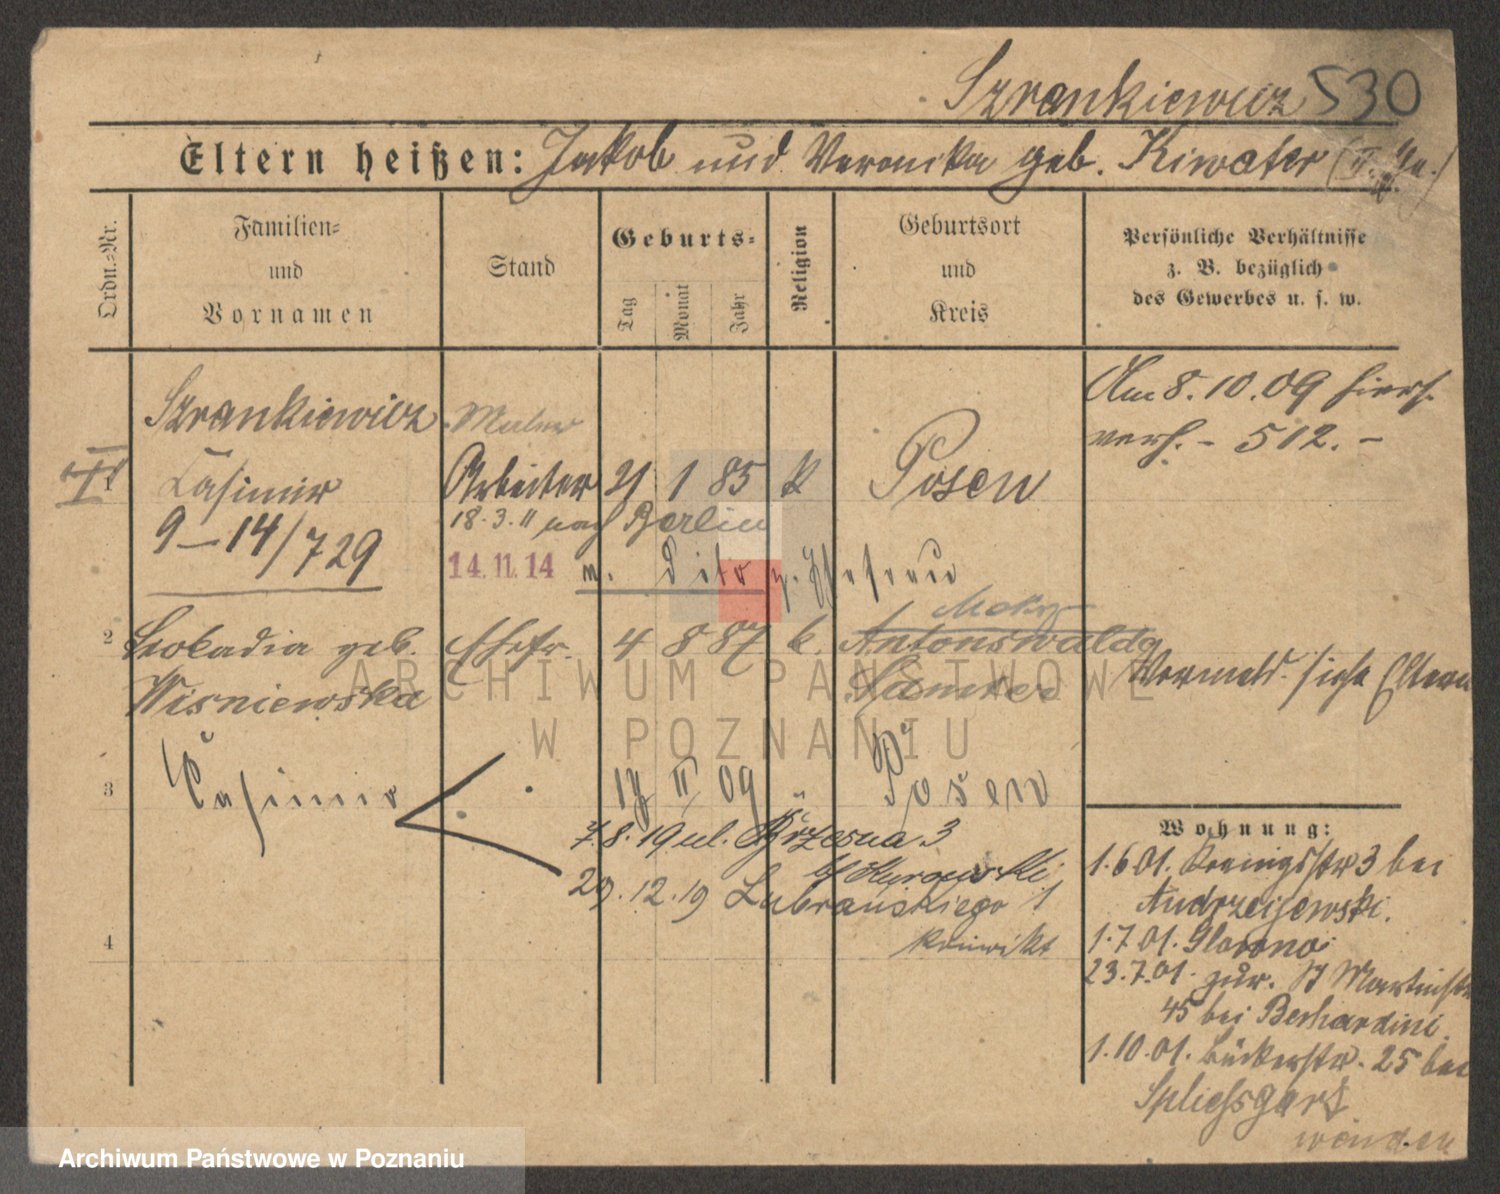 Szrankiewicz 530
Eltern heißen: Jakob und Veronika geb. Kiwater (II. Ehe.)
Ordn.-Nr.
Familien-
und
Vornamen
Stand
Geburts-
Tag
Monat
Jahr
Religion
Geburtsort
und
Kreis
Persönliche Verhältnisse
z. B. bezüglich
des Gewerbes u. s. w.
Szrankiewicz Maler
Am 8.10.09 hiers.
verh. - 512. -
1 Casimir Arbeiter 21 1 85 k Posen
9-14/729
18.3.11 nach Berlin
14.11.14 dito
2 Leokadia geb. Ehefr. 4 8 87 k. Antonswald
Wisniewska Samter
Vermeld. siehe Eltern
3 Casimir 17 II 09 " Posen
7.8.19 ul. 3
29.12.19 Lubrańskiego 1
4
Wohnung:
1.6 01. 3 bei
Andrzejewski.
1.7 01. Glowno
23.7.01. zur. St Martinstr
45 bei Berhardini.
1.10.01. Bäckerstr. 25 bei
Spliessgart
wenden
ARCHIWUM PAŃSTWOWE
W POZNANIU
Archiwum Państwowe w Poznaniu